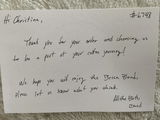 Hi Christina,
#6798
Thank you for your order and choosing us
to be a part of your coffee journey!
We hope you will enjoy the Brisa Blend.
Please let us know what you think.
All the Best,